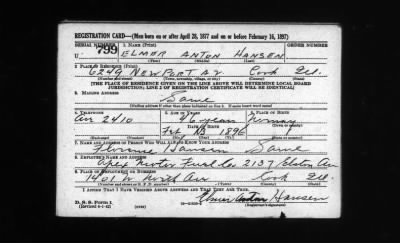 REGISTRATION CARD—(Men born on or after April 28, 1877 and on or before February 16, 1897)
SERIAL NUMBER 1. NAME (Print) ORDER NUMBER
U 799 ELMER ANTON HANSEN
(First) (Middle) (Last)
2. PLACE OF RESIDENCE (Print)
6249 NEWPORT AV Cook Ill.
(Number and street) (Town, township, village, or city) (County) (State)
[THE PLACE OF RESIDENCE GIVEN ON THE LINE ABOVE WILL DETERMINE LOCAL BOARD
JURISDICTION; LINE 2 OF REGISTRATION CERTIFICATE WILL BE IDENTICAL]
3. MAILING ADDRESS
Same
(Mailing address if other than place indicated on line 2. If same insert word same)
4. TELEPHONE 5. AGE IN YEARS 6. PLACE OF BIRTH
2410 46 years
DATE OF BIRTH
1896
(Exchange) (Number) (Mo.) (Day) (Yr.) (State or country)
7. NAME AND ADDRESS OF PERSON WHO WILL ALWAYS KNOW YOUR ADDRESS
Hansen Same
8. EMPLOYER'S NAME AND ADDRESS
Apex Motor Fuel Co. 2137 Elston Av
9. PLACE OF EMPLOYMENT OR BUSINESS
1401 W North Av Cook Ill.
(Number and street or R. F. D. number) (Town) (County) (State)
I AFFIRM THAT I HAVE VERIFIED ABOVE ANSWERS AND THAT THEY ARE TRUE.
D. S. S. Form 1 Elmer Anton Hansen
(Revised 4-1-42) (over)